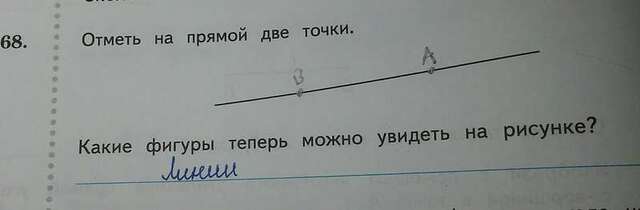 68. Отметь на прямой две точки.
В А
Какие фигуры теперь можно увидеть на рисунке?
Линии